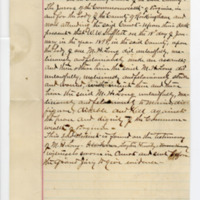 The Jurors of the Commonwealth of Virginia in
and for the body of the County of Rockingham and
now attending the said Court upon their Oath
present that W. H. Shifflett on the 18 day of Jan
uary in the year 18 in his said County, upon
the body of one M. H. Long did unlawfully, ma
liciously and feloniously make an assault
and then there him the said M. H. Long did
unlawfully, maliciously and feloniously stab
and wound with intent him and then
there him the said M. H. Long unlawfully, ma
liciously and feloniously to maim, dis
figure, disable and kill against
the peace and dignity of the Common
wealth of Virginia.
This indictment is found on the testimony
of M. H. Long
witnesses sworn in Court and sent before
the grand jury to give evidence.